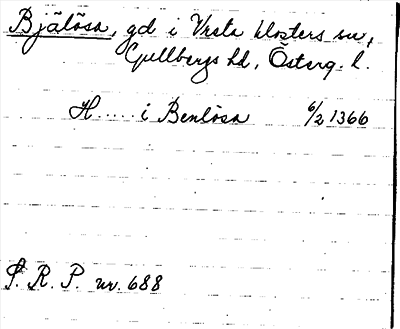 Bjälösa, gd i Vreta klosters sn,
Gullbergs hd, Österg. l.
H..... i Benlösa 6/2 1366
S. R. P. nr. 688